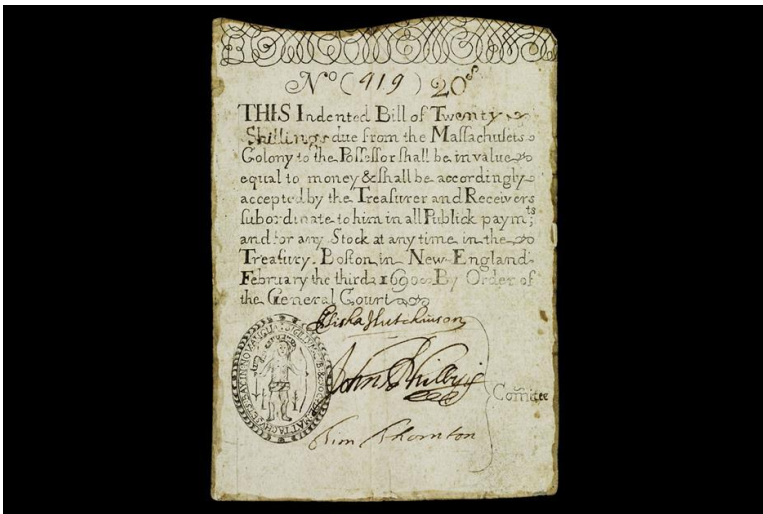 No (919) 20s
THIS Indented Bill of Twenty
Shillings due from the Maſſachuſets
Colony to the Poſſeſſor ſhall be in value
equal to money & ſhall be accordingly
accepted by the Treaſurer and Receivers
ſubordinate to him in all Publick paymts:
and for any Stock at any time in the
Treaſury. Boſton in New-England
February the third 1690 By Order of
the General Court
Eliska Hutchinson
John Phillips
Tim Thornton
Comitee